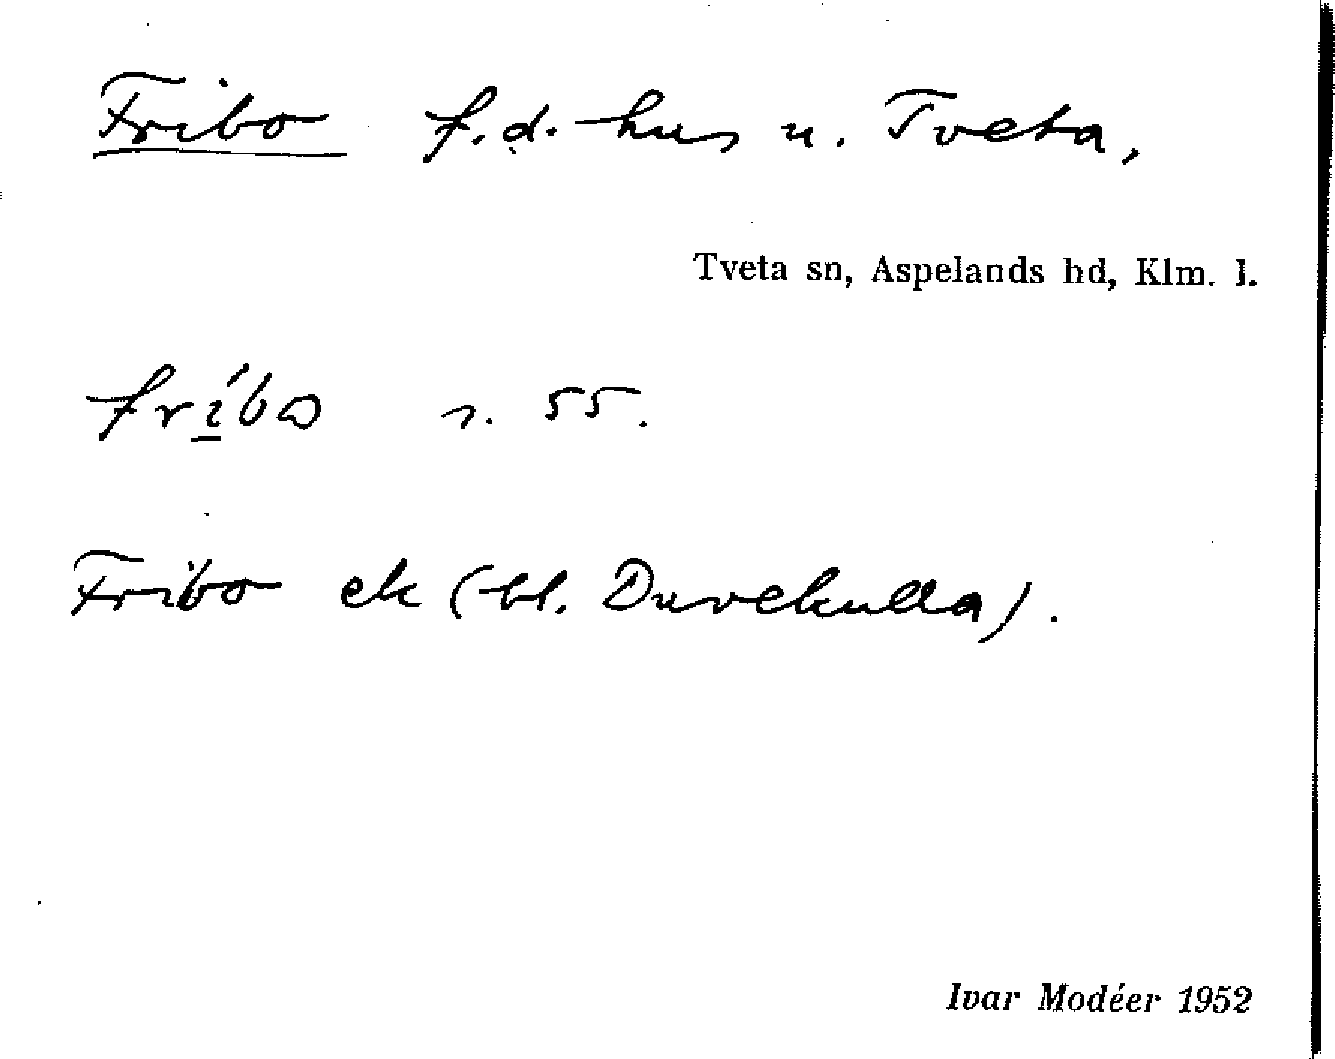 Fribo f.d. hus u. Tveta,
Tveta sn, Aspelands hd, Klm. l.
frí̲bω s. 55.
Fribo ek (bl. Duvekulla).
Ivar Modéer 1952